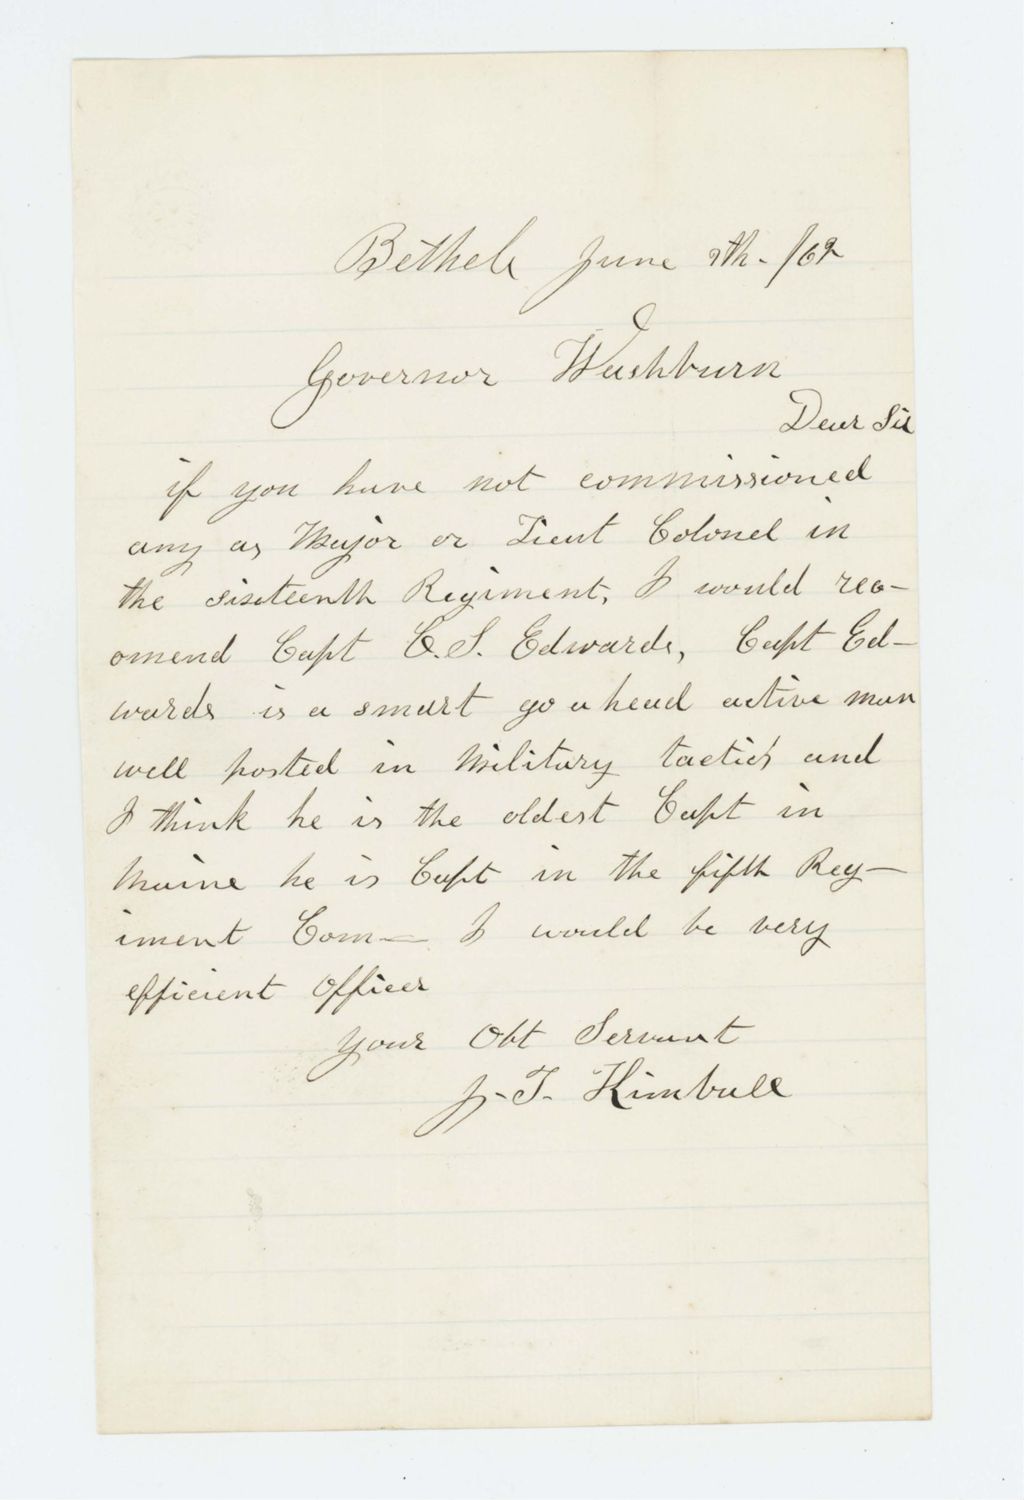 Bethel June 9th - /62
Governor Washburn
Dear Sir
if you have not commissioned
any as Major or Lieut Colonel in
the sixteenth Regiment, I would rec-
omend Capt C. S. Edwards, Capt Ed-
wards is a smart go ahead active man
well posted in Military tactics and
I think he is the oldest Capt in
Maine he is Capt in the fifth Reg-
iment Com— I would be very
efficient Officer
your Obt Servant
J. T. Kimball